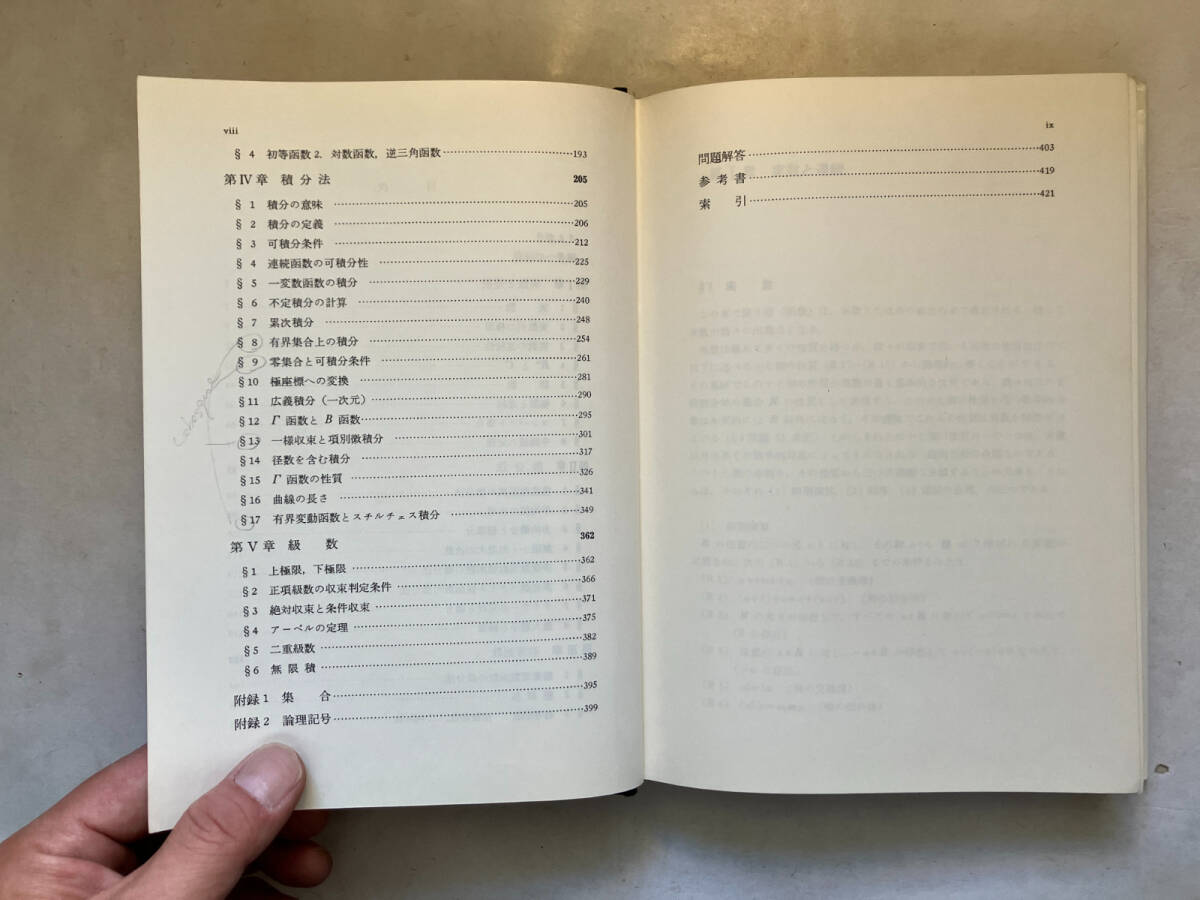 viii
§ 4 初等函数 2. 対数函数, 逆三角函数 193
第 IV 章 積 分 法 205
§ 1 積分の意味 205
§ 2 積分の定義 206
§ 3 可積分条件 212
§ 4 連続函数の可積分性 225
§ 5 一変数函数の積分 229
§ 6 不定積分の計算 240
§ 7 累次積分 248
§ 8 有界集合上の積分 254
§ 9 零集合と可積分条件 261
§10 極座標への変換 281
§11 広義積分 (一次元) 290
§12 Γ 函数と B 函数 295
§13 一様収束と項別微積分 301
§14 径数を含む積分 317
§15 Γ 函数の性質 326
§16 曲線の長さ 341
§17 有界変動函数とスチルチェス積分 349
第 V 章 級 数 362
§1 上極限, 下極限 362
§2 正項級数の収束判定条件 366
§3 絶対収束と条件収束 371
§4 アーベルの定理 375
§5 二重級数 382
§6 無 限 積 389
附録 1 集 合 395
附録 2 論理記号 399
ix
問題解答 403
参 考 書 419
索 引 421